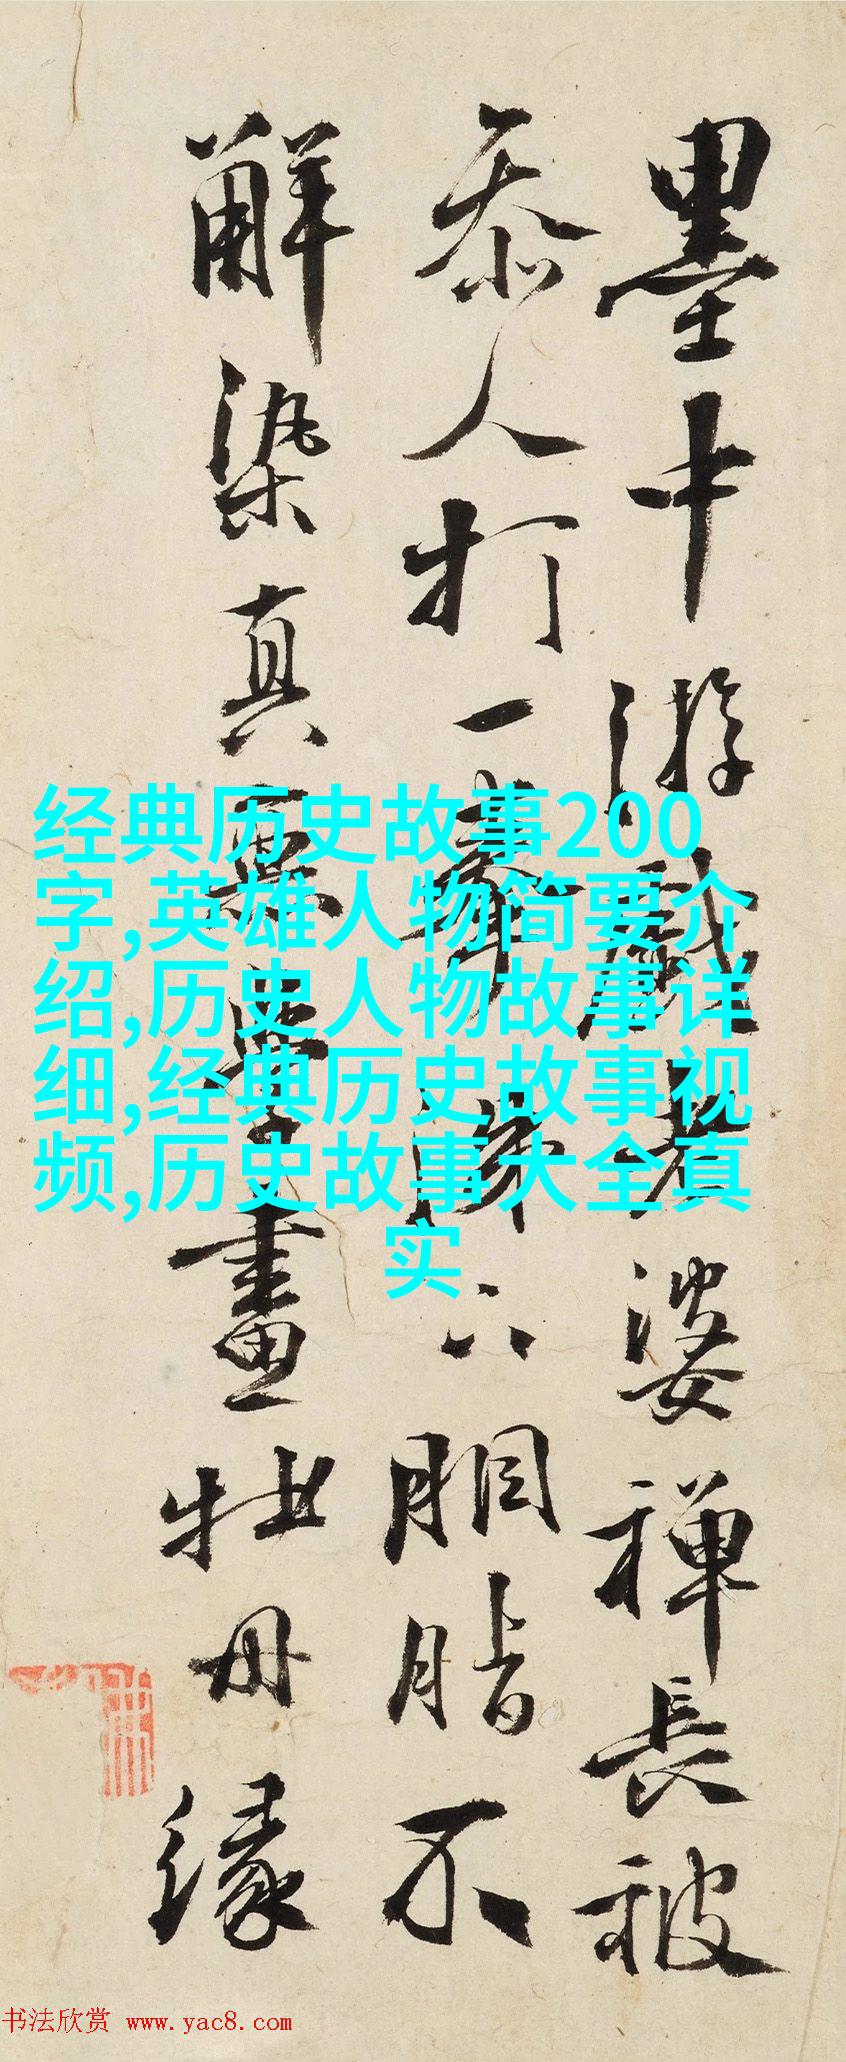 墨中游戲老婆禪長被
忝人打一拳涕下胭脂不
解染真無學畫牡丹緣
经典历史故事200
字,英雄人物简要介
绍,历史人物故事详
细,经典历史故事视
频,历史故事大全真
实
书法欣赏 www.yac8.com